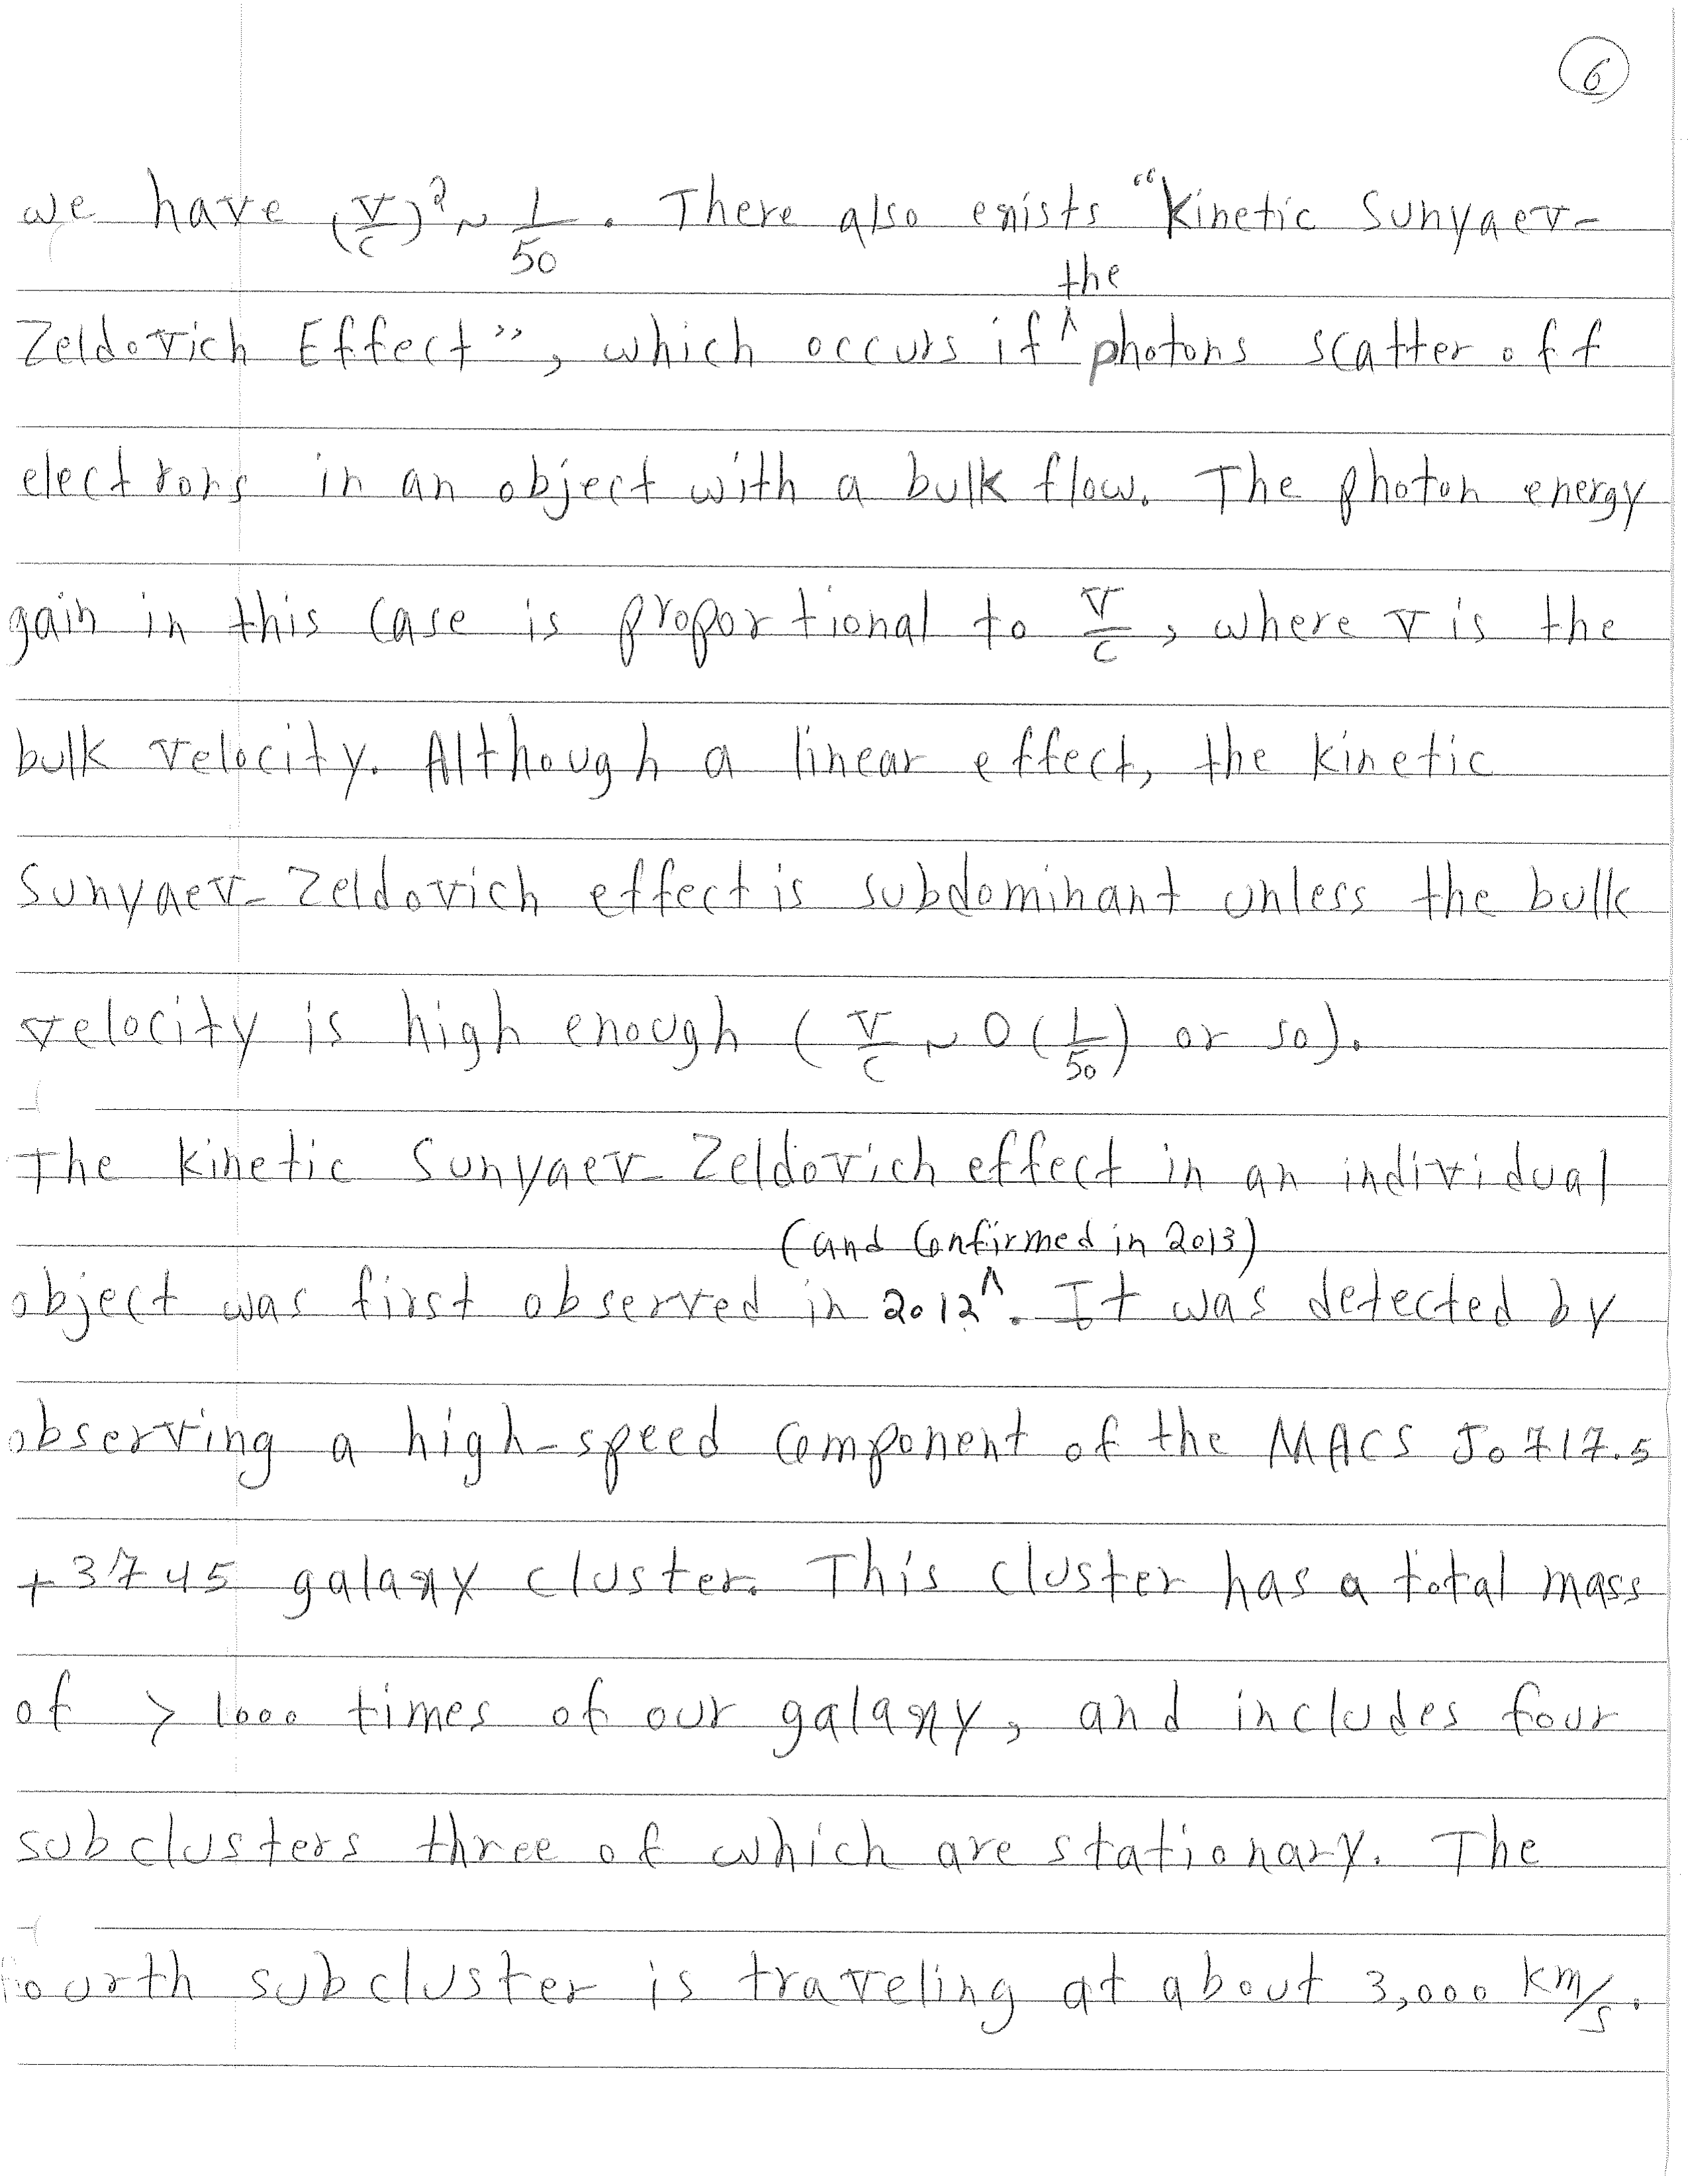 6
we have (v/c)² ~ 1/50. There also exists "Kinetic Sunyaev-
the
Zeldovich Effect", which occurs if ^ photons scatter off
electrons in an object with a bulk flow. The photon energy
gain in this case is proportional to v/c, where v is the
bulk velocity. Although a linear effect, the kinetic
Sunyaev-Zeldovich effect is subdominant unless the bulk
velocity is high enough (v/c ~ O(1/50) or so).
The kinetic Sunyaev-Zeldovich effect in an individual
(and confirmed in 2013)
object was first observed in 2012^. It was detected by
observing a high-speed component of the MACS J0717.5
+3745 galaxy cluster. This cluster has a total mass
of > 1000 times of our galaxy, and includes four
subclusters three of which are stationary. The
fourth subcluster is traveling at about 3,000 km/s.